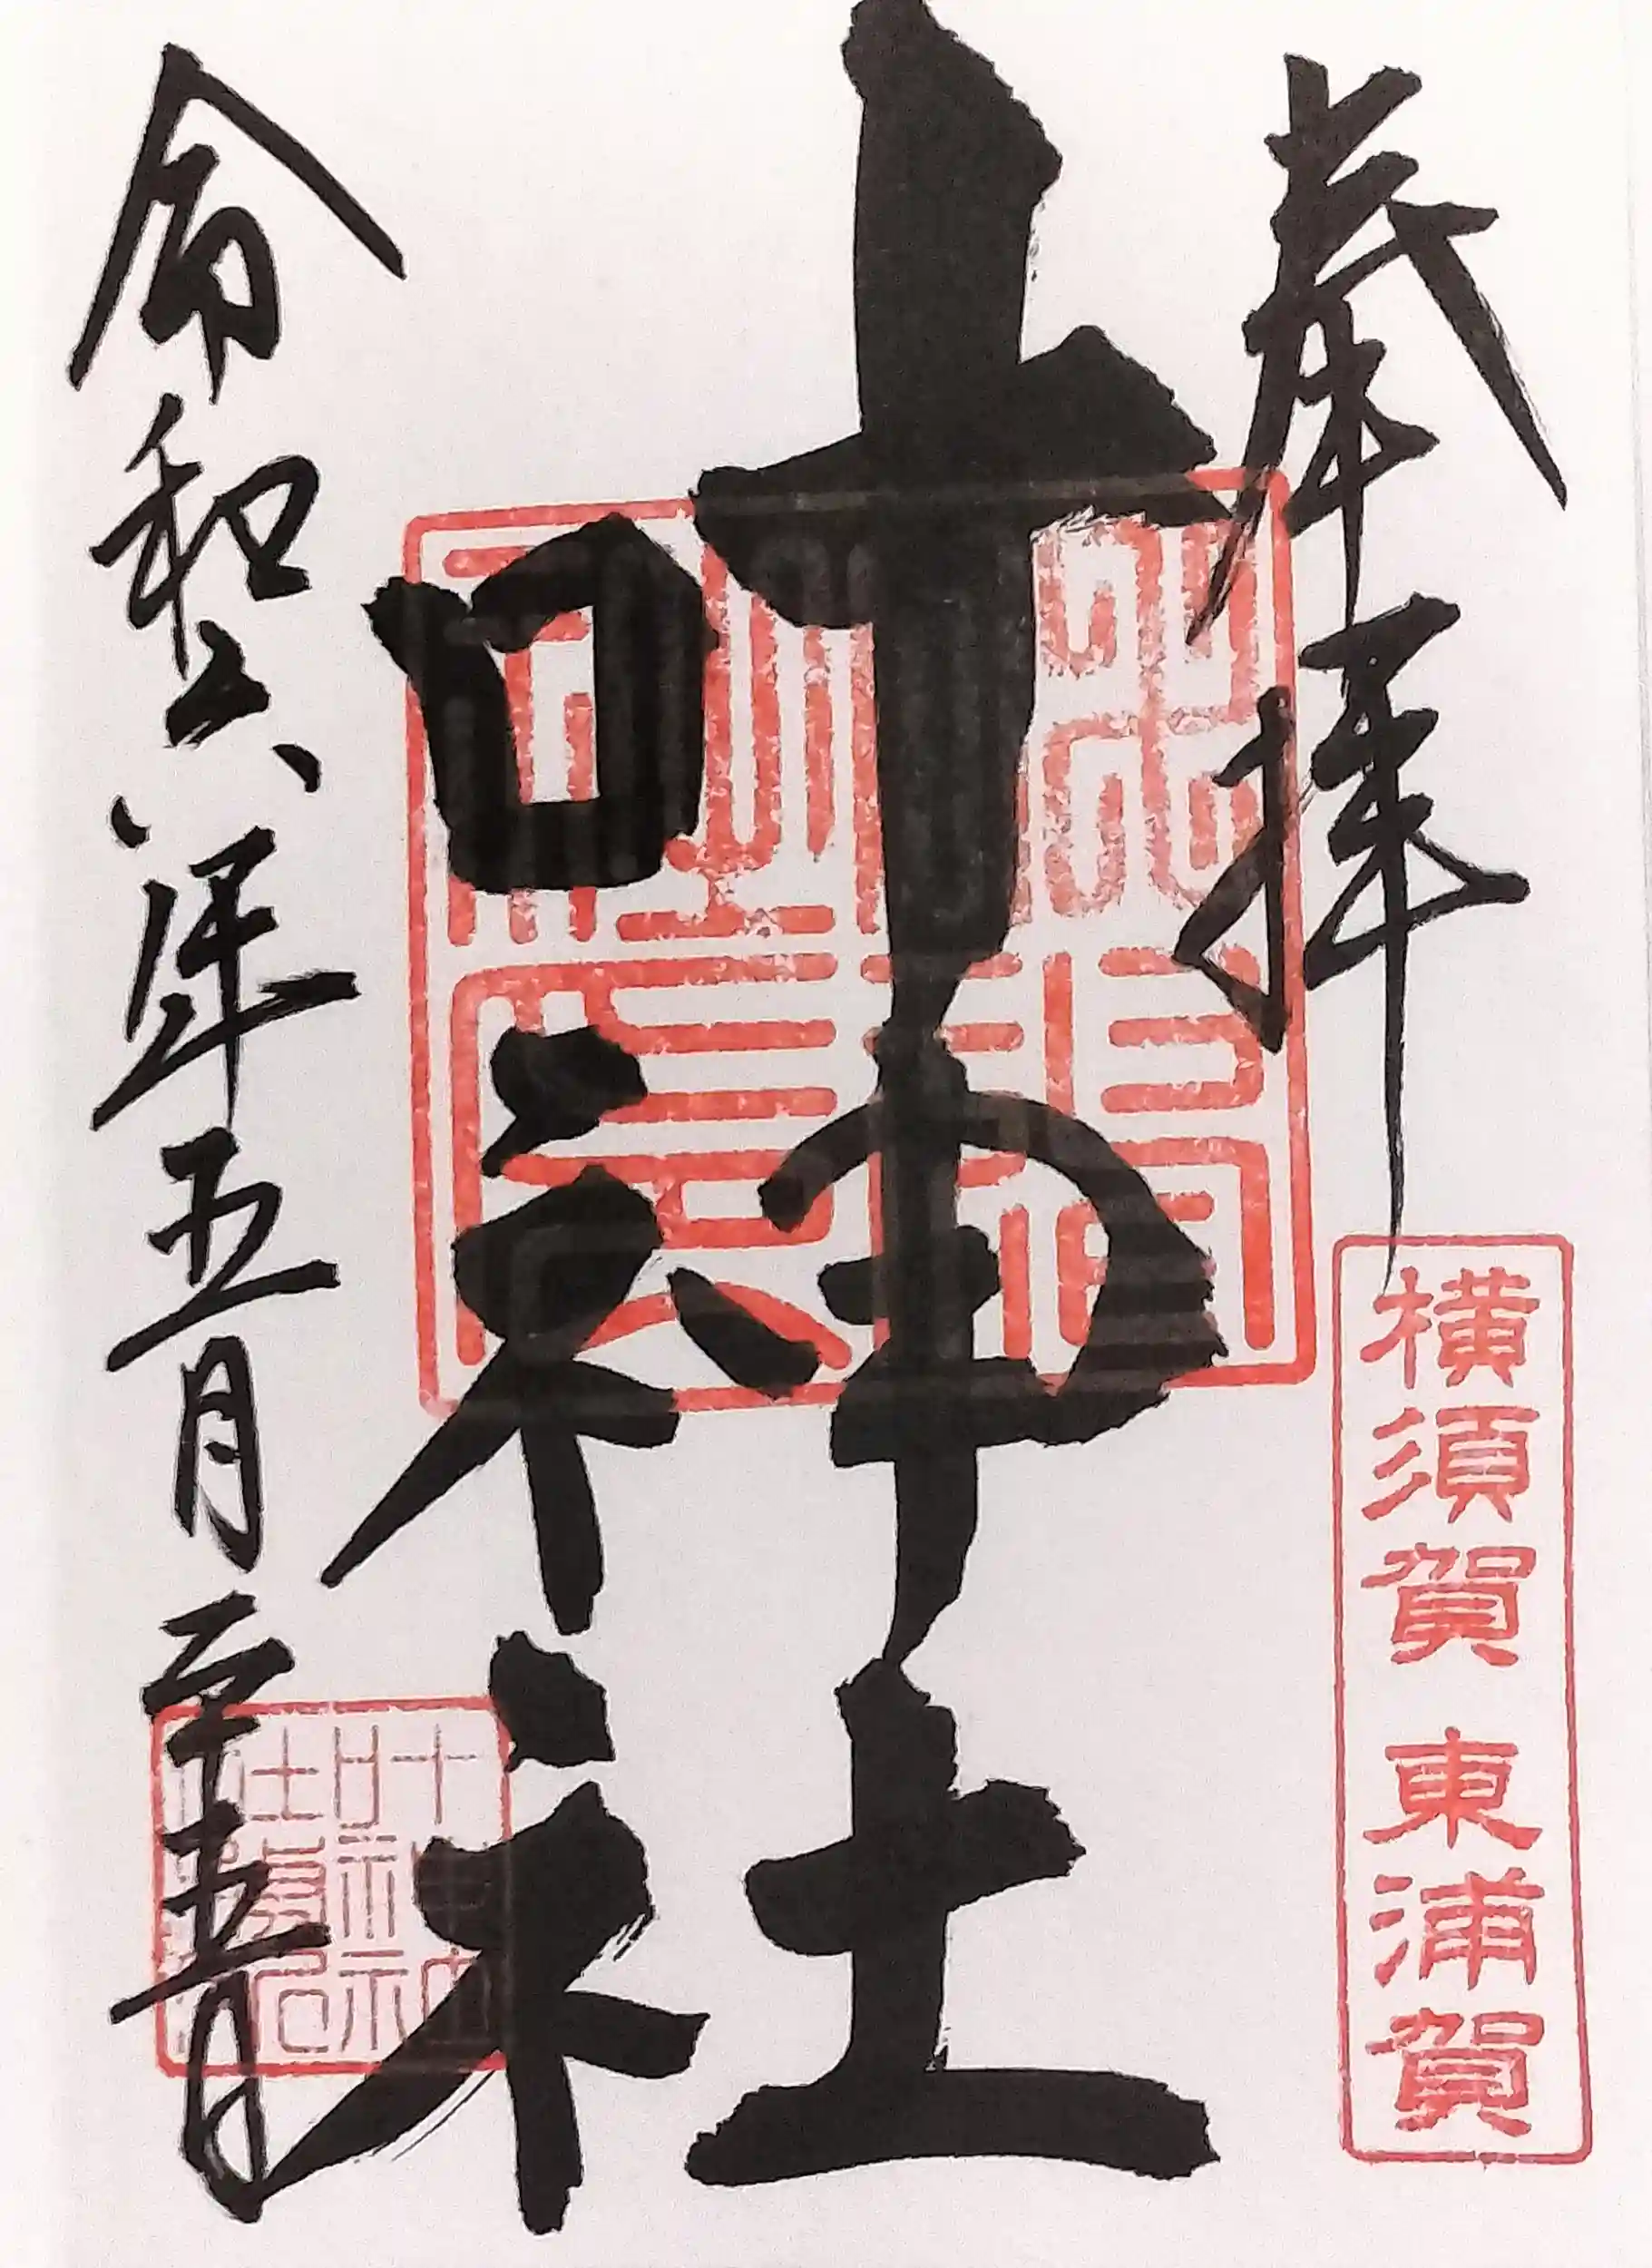 奉拝
横須賀 東浦賀
叶神社
令和六年五月二十五日